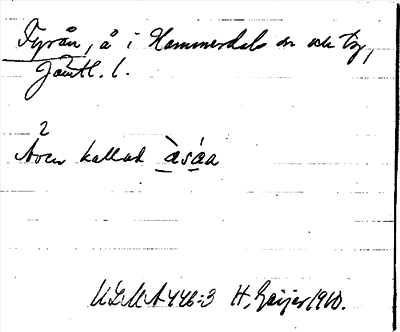 Fyrån, å i Hammerdals sn och tg,
Jämtl. l.
2
Även kallad àsáa
ULMA 446:3 H. Geijer 1910.